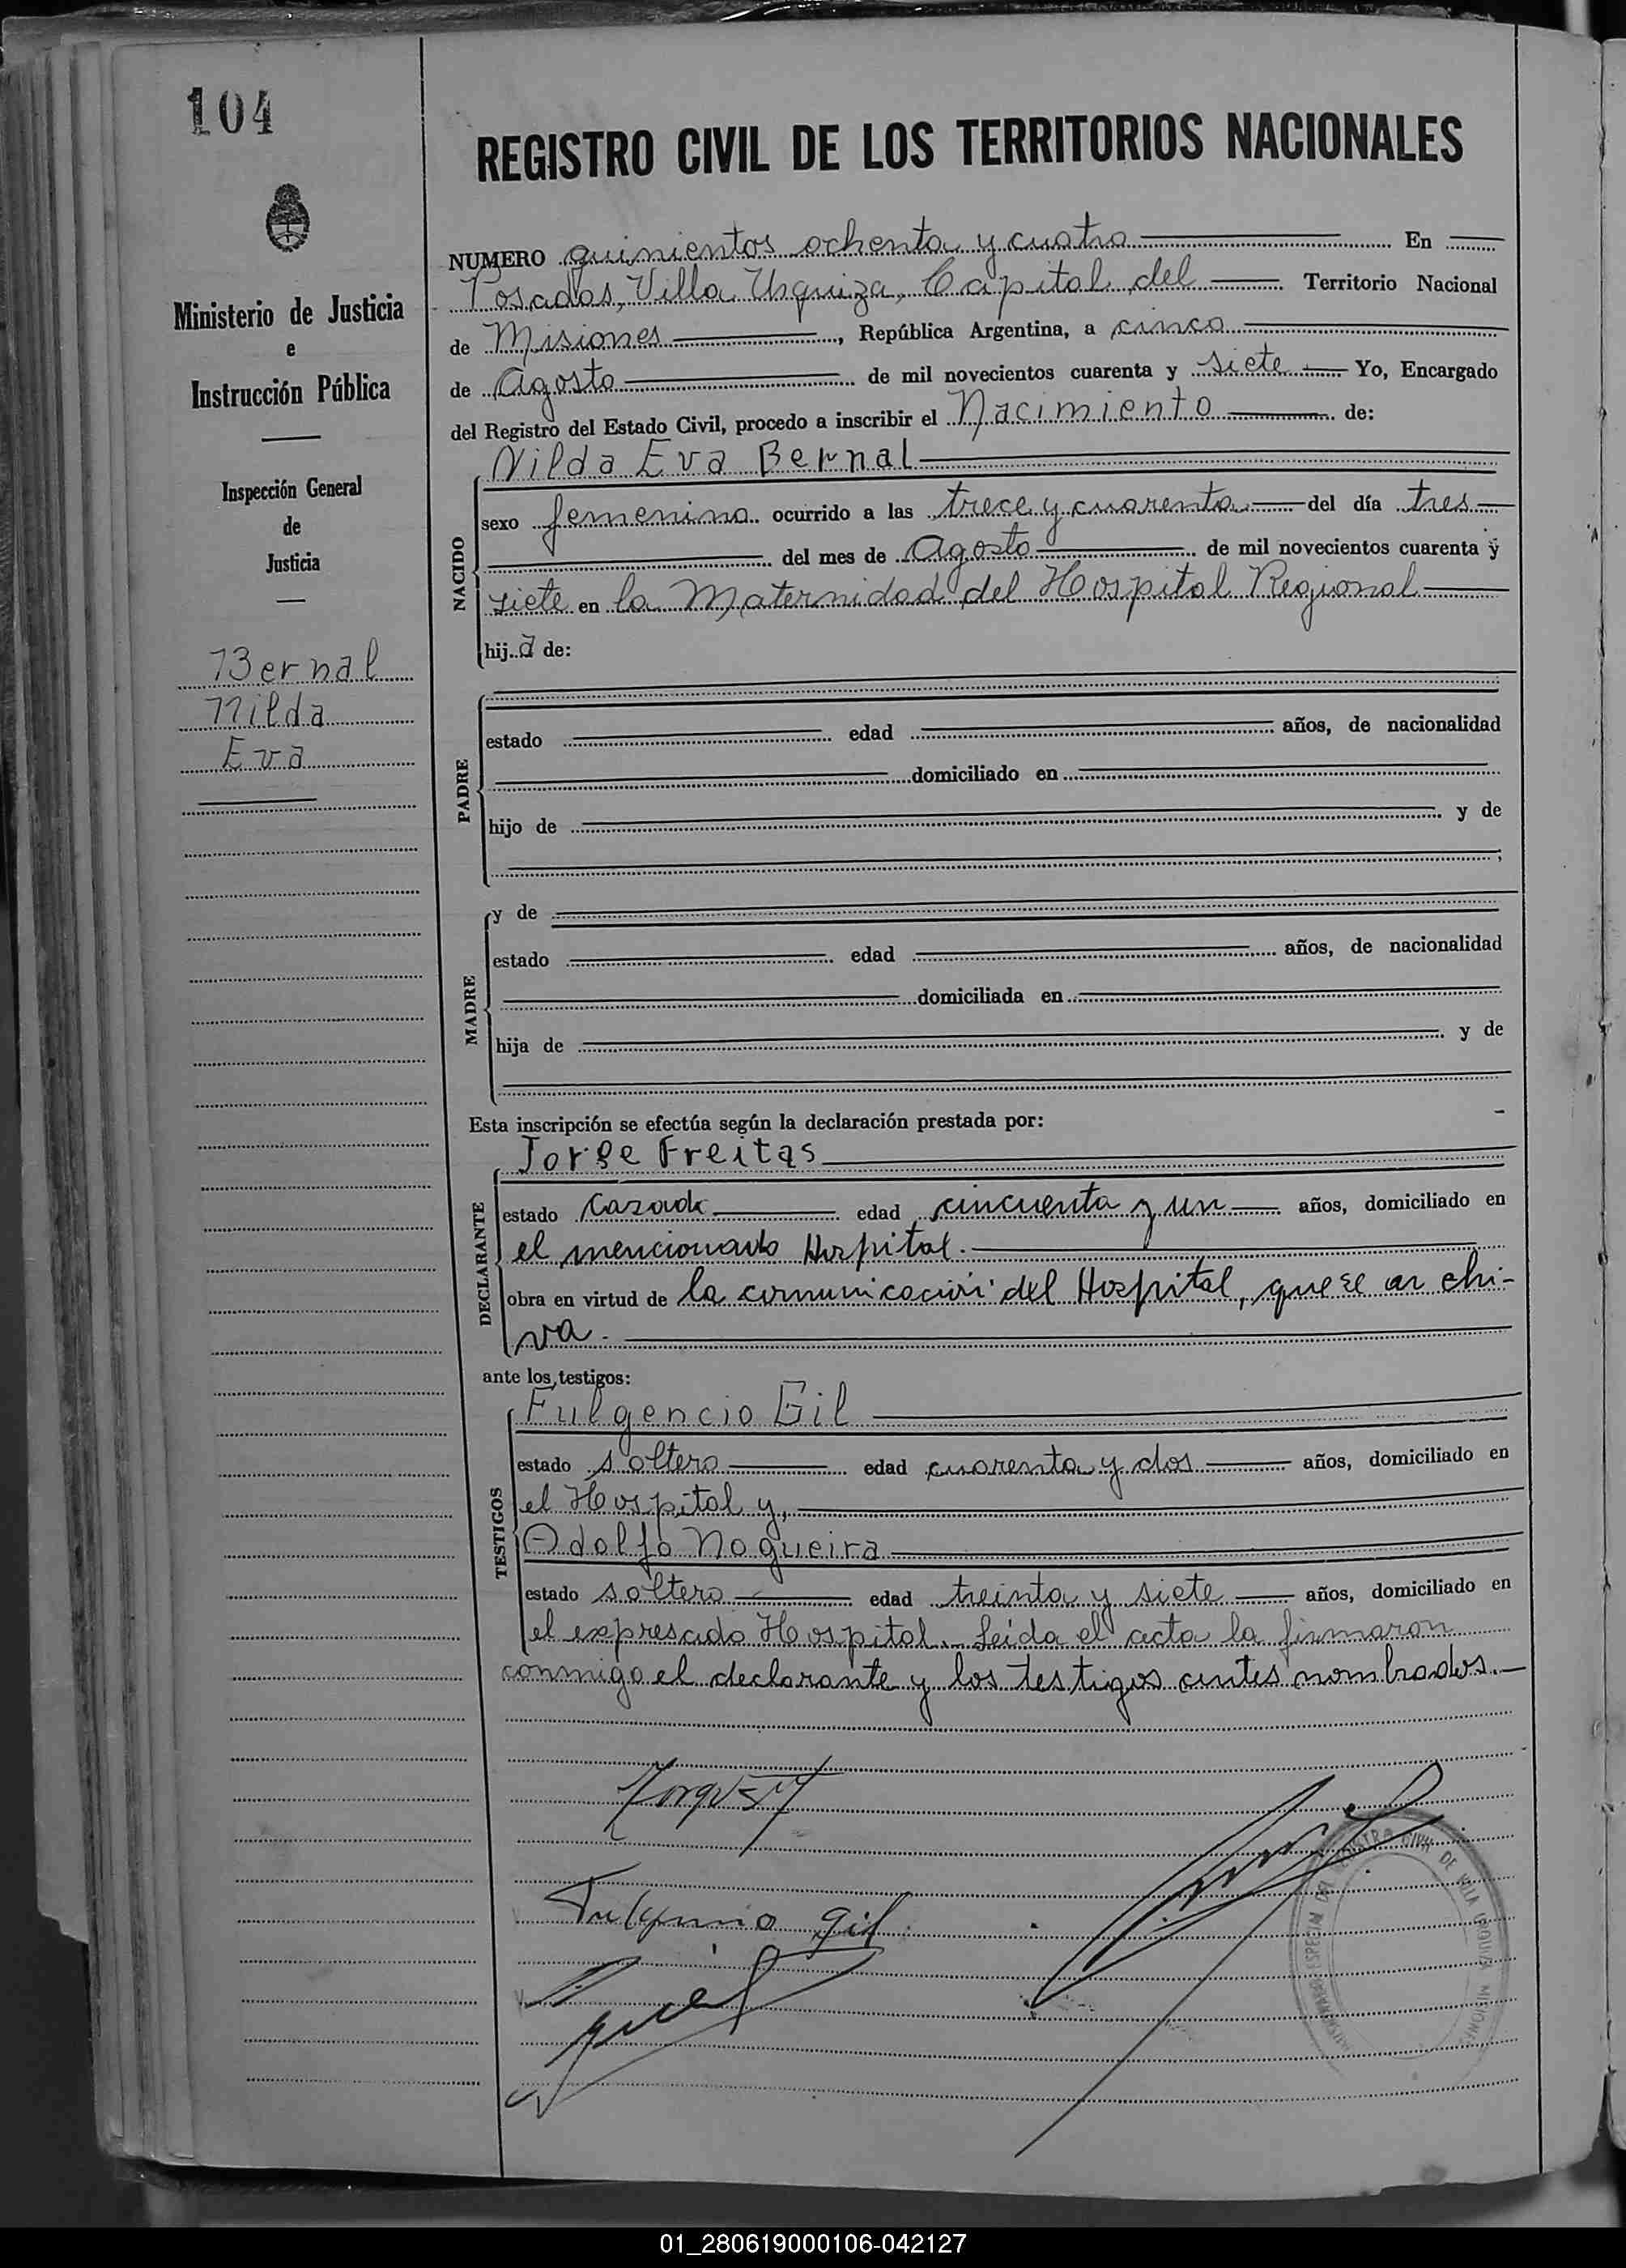 104
REGISTRO CIVIL DE LOS TERRITORIOS NACIONALES
Ministerio de Justicia
e
Instrucción Pública
Inspección General
de
Justicia
Bernal
Nilda
Eva
NUMERO quinientos ochenta y cuatro En
Posadas, Villa Urquiza, Capital del Territorio Nacional
de Misiones, República Argentina, a cinco
de Agosto de mil novecientos cuarenta y siete Yo, Encargado
del Registro del Estado Civil, procedo a inscribir el Nacimiento de:
NACIDO
Nilda Eva Bernal
sexo femenino ocurrido a las trece y cuarenta del día tres
del mes de Agosto de mil novecientos cuarenta y
siete en la Maternidad del Hospital Regional
hija de:
PADRE
estado edad años, de nacionalidad
domiciliado en
hijo de y de
MADRE
y de
estado edad años, de nacionalidad
domiciliada en
hija de y de
Esta inscripción se efectúa según la declaración prestada por:
DECLARANTE
Jorge Freitas
estado casado edad cincuenta y un años, domiciliado en
el mencionado Hospital.
obra en virtud de la comunicación del Hospital, que se archi-
va.
ante los testigos:
TESTIGOS
Fulgencio Gil
estado soltero edad cuarenta y dos años, domiciliado en
el Hospital y,
Adolfo Nogueira
estado soltero edad treinta y siete años, domiciliado en
el expresado Hospital. Leida el acta la firmaron
conmigo el declarante y los testigos antes nombrados.
Fulgencio Gil
ESPECIAL DEL REGISTRO CIVIL DE VILLA URQUIZA MISIONES
01_280619000106-042127